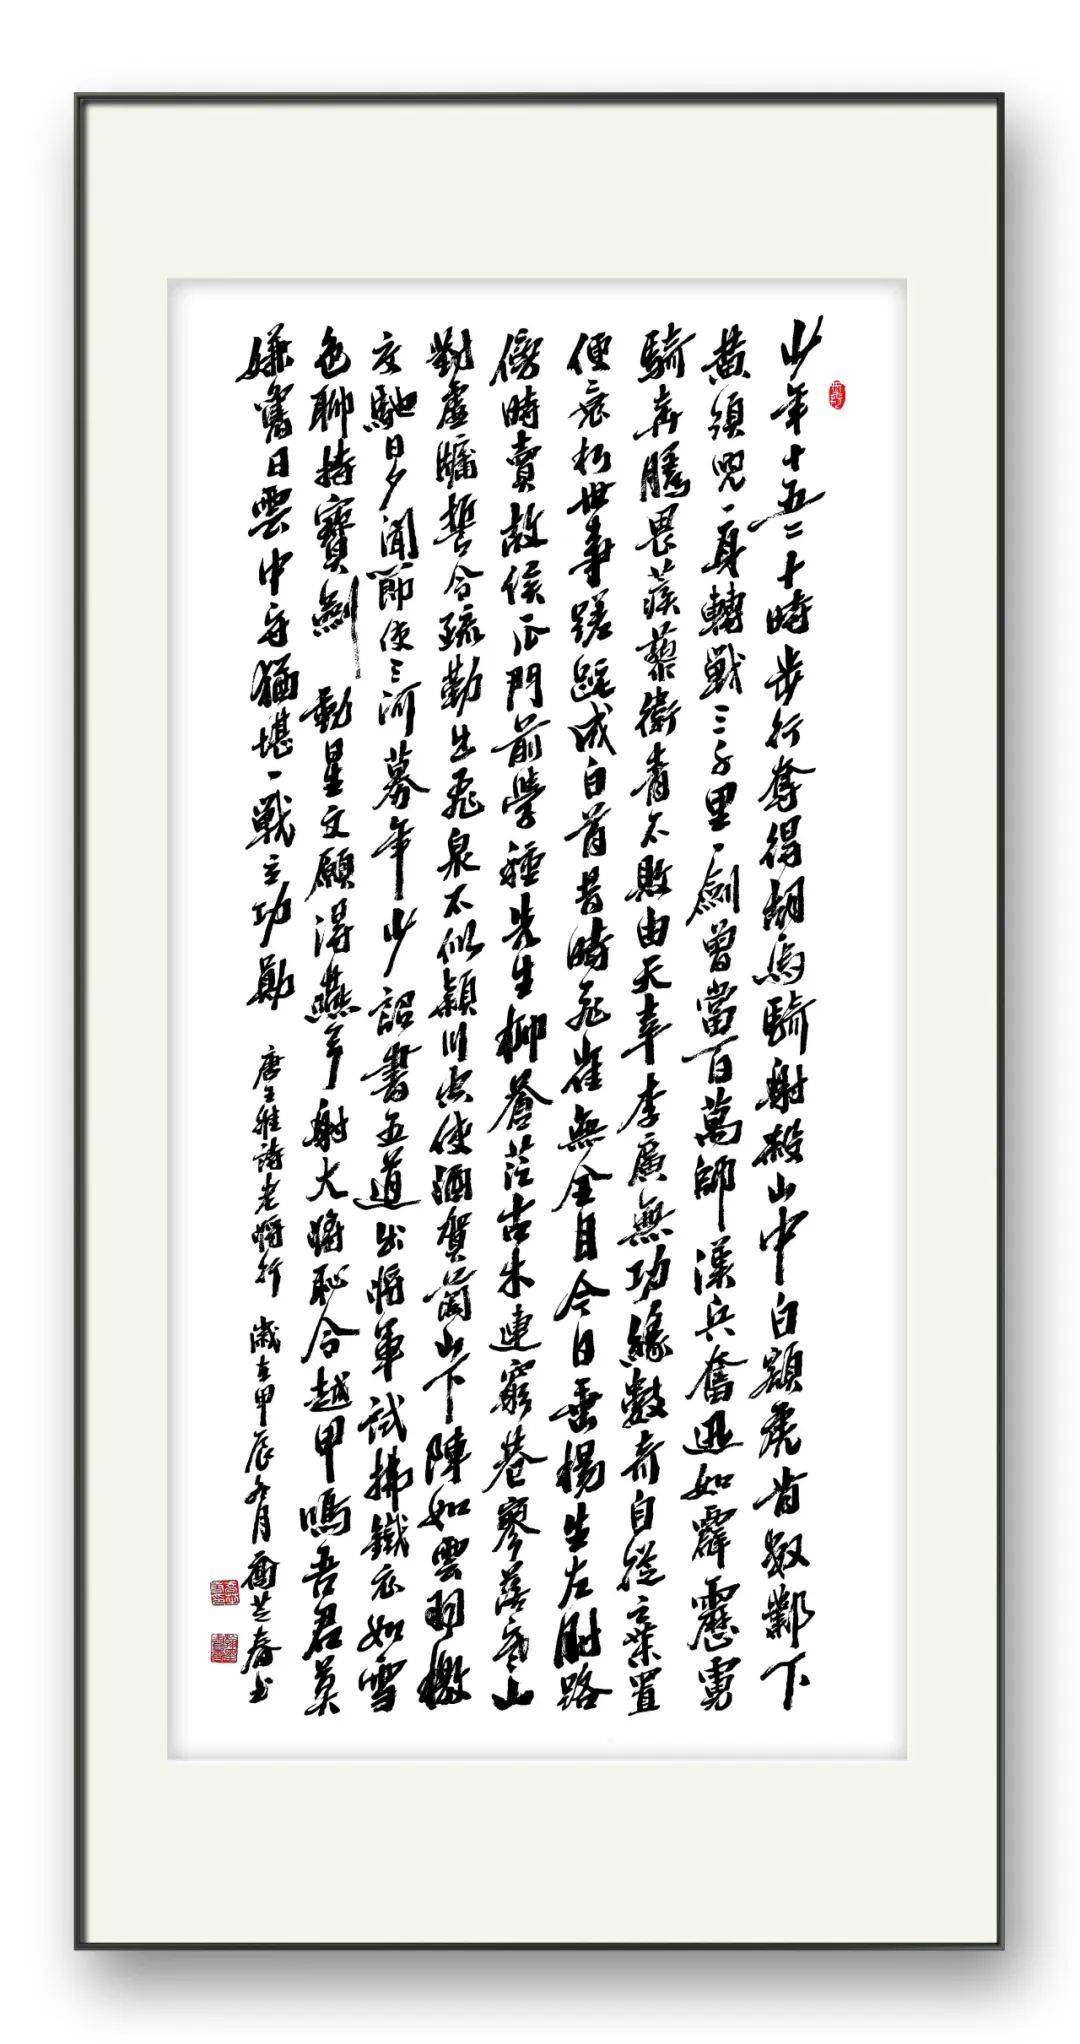 少年十五二十時步行奪得胡馬騎射殺山中白額虎肯數鄴下
黃須兒一身轉戰三千里一劍曾當百萬師漢兵奮迅如霹靂虜
騎奔騰畏蒺藜衛青不敗由天幸李廣無功緣數奇自從棄置
便衰朽世事蹉跎成白首昔時飛雀無全目今日垂楊生左肘路
傍時賣故侯瓜門前學種先生柳蒼茫古木連窮巷寥落寒山
對虛牖誓令疏勒出飛泉不似潁川空使酒賀蘭山下陣如雲羽檄
交馳日夕聞節使三河募年少詔書五道出將軍試拂鐵衣如雪
色聊持寶劍動星文願得燕弓射大將恥令越甲鳴吾君莫
嫌舊日雲中守猶堪一戰立功勳 唐王維詩老將行 歲在甲辰九月 芝春書